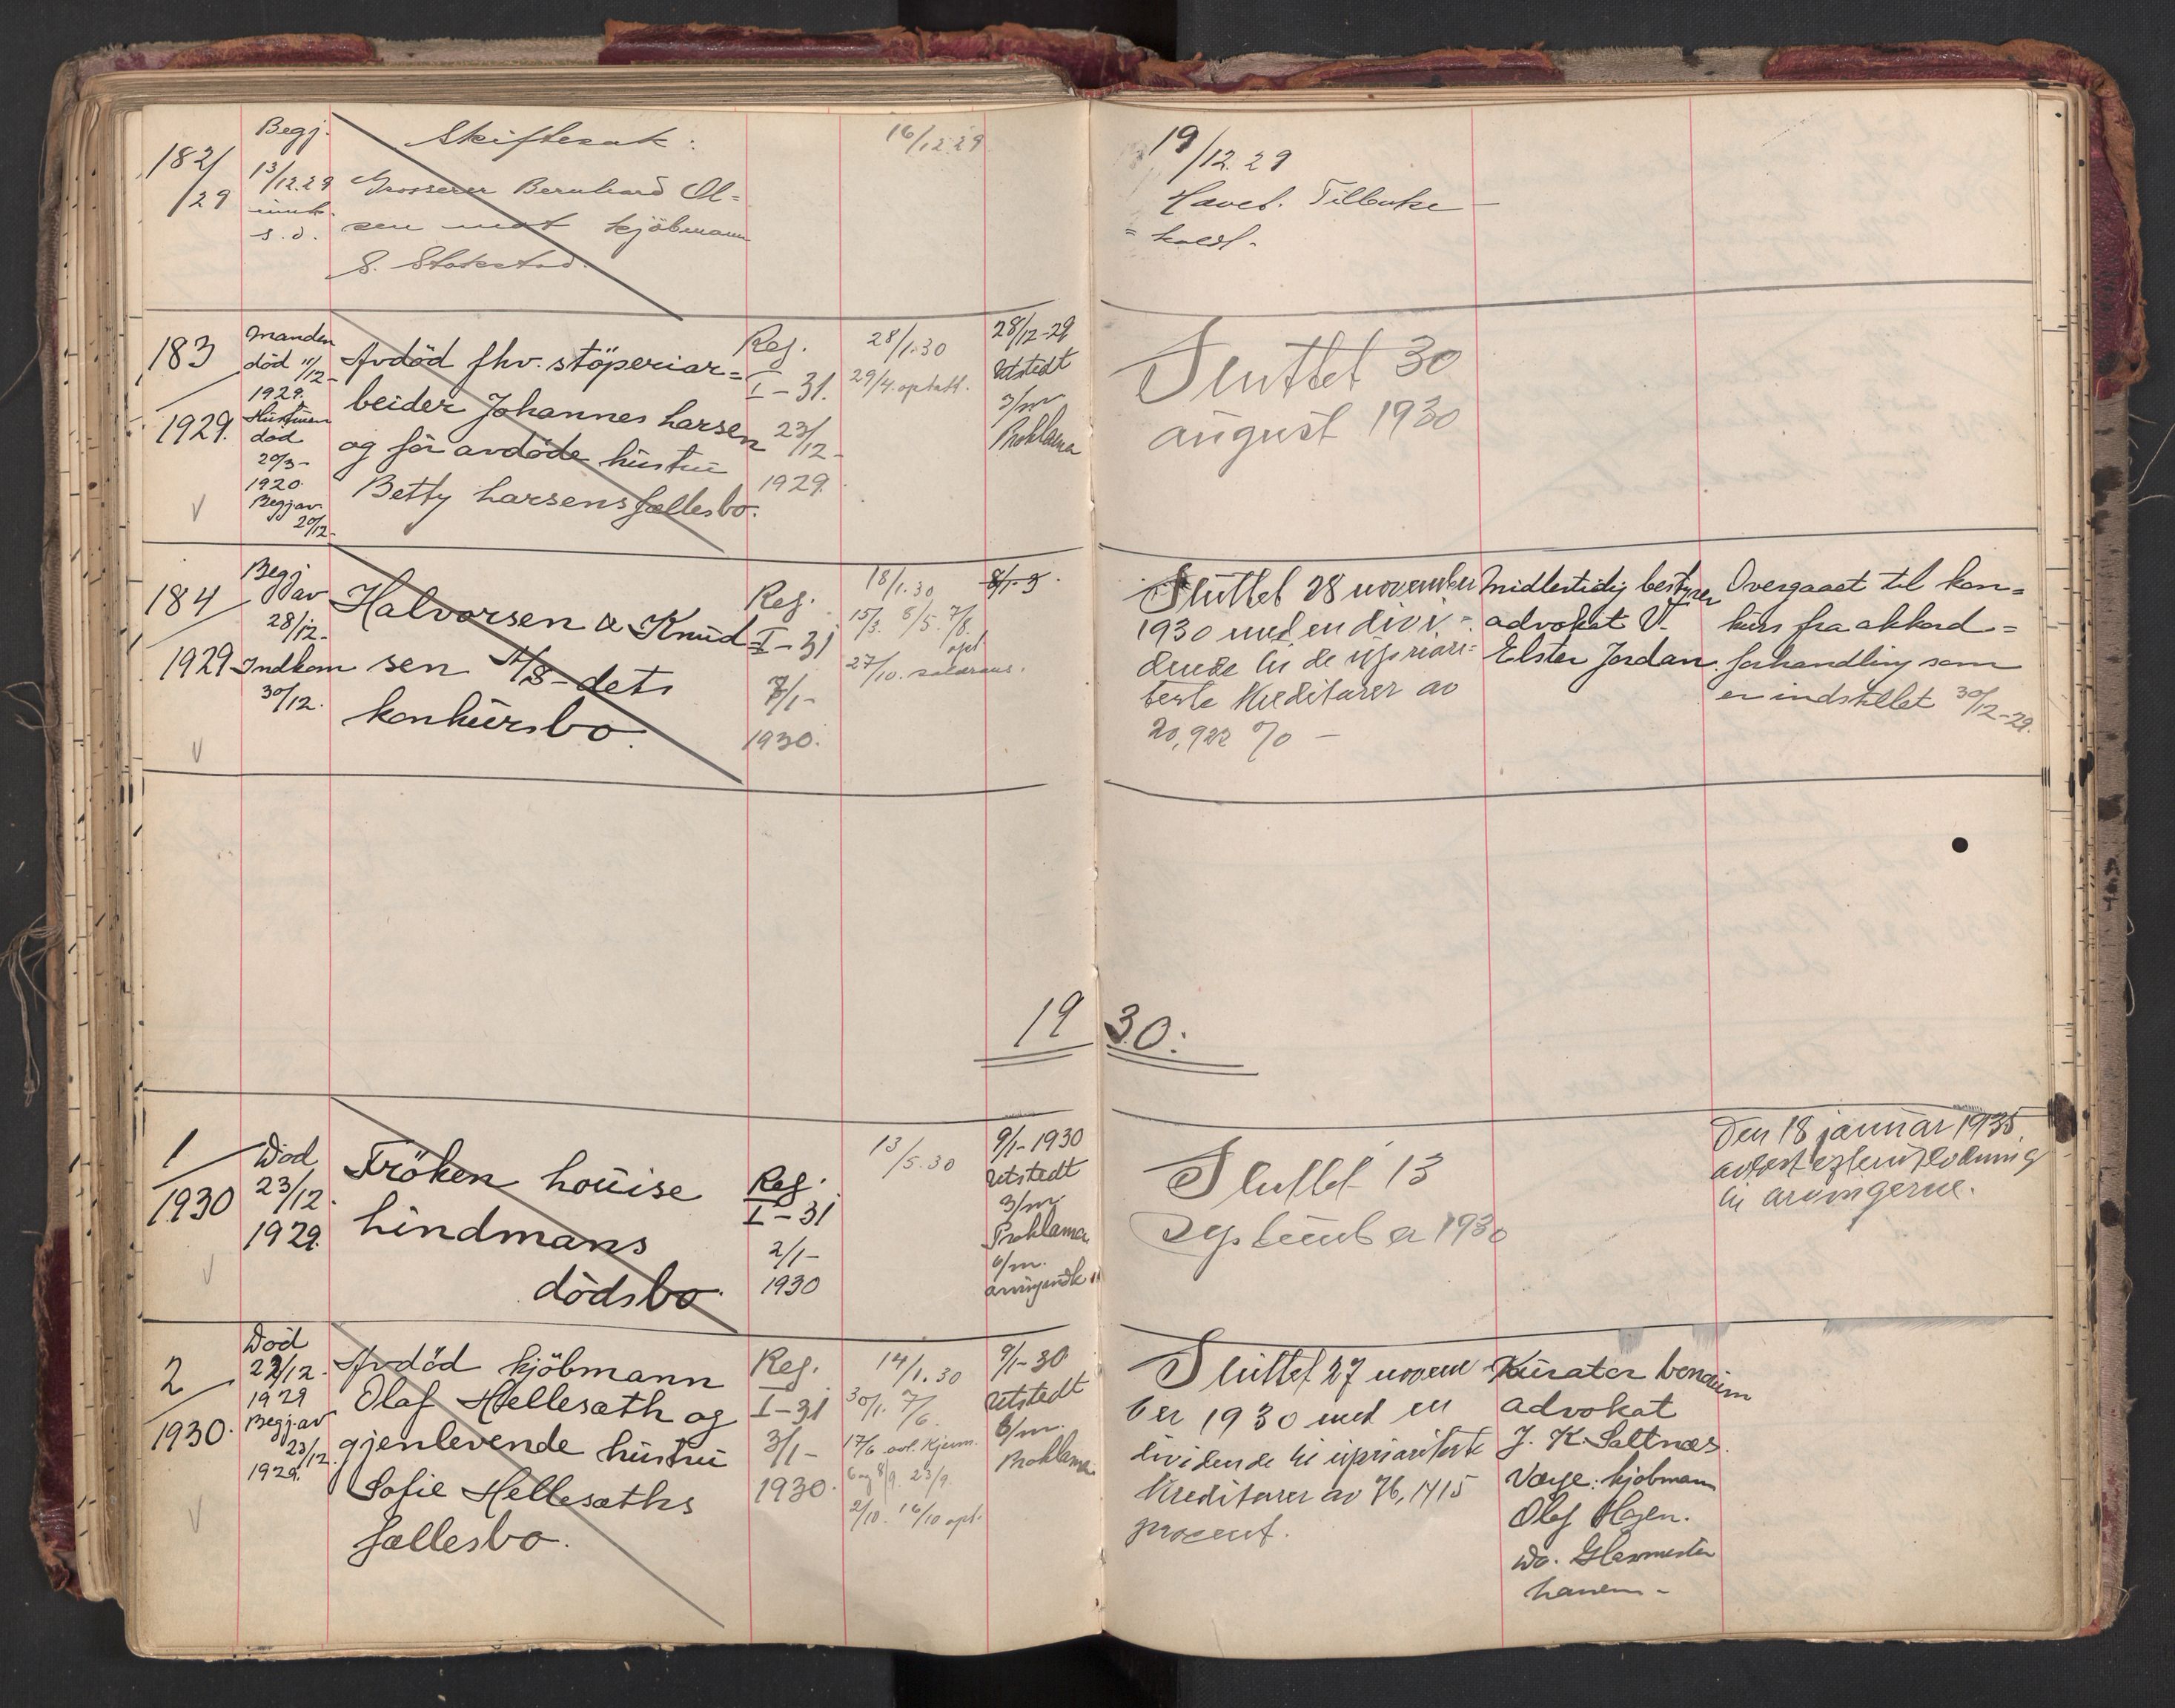 182/
/29
Begj.
13/12.29
innk.
s.d.
Skiftesak:
Grosserer Bernhard Ol=
sen mot kjöbmann
S. Stokstad.
16/12.29
19/12.29
Hævet. Tilbake=
=kaldt.
183
1929.
Manden
död 11/12-
1929.
Hustruen
död
20/3-
1920.
Begj av
20/12-
Avdöd fhv. stöperiar=
beider Johannes Larsen
og för avdöde hustru
Betty Larsens fællesbo.
Reg.
I-31.
23/12-
1929.
28/1.30
29/4. optatt.
28/12-29
Utstedt
3/m
Proklama
Sluttet 30
august 1930
184
1929
Begj
av
28/12-
Indkom
30/12.
Halvorsen & Knud
sen A/S-dets
konkursbo.
Reg.
I-31
7/1-
1930.
18/1.30
15/3. 6/5. 7/8.
opt
27/10.
8/1-3.
Sluttet 28 november
1930 med en divi=
dende til de upriori=
terte kreditorer av
20,922 % -
Midlertidig bestyrer
advokat V.
Elster Jordan.
Overgaaet til kon=
kurs fra akkord=
forhandling som
er indstillet 30/12-29.
19 30:
1
1930
Död
23/12.
1929.
Fröken Louise
Lindmans
dödsbo.
Reg.
I-31
2/1-
1930
13/5.30
9/1-1930
Utstedt
3/m
Proklama
6/m.
Sluttet 13
september 1930
Den 18 januar 1935
avlyst
til arvingerne.
2
1930.
Död
22/12.
1929
Begj. av
23/12.
1929.
Avdöd kjöbmann
Olaf Hellesæth og
gjenlevende hustru
Sofie Hellesæths
fællesbo.
Reg.
I-31
3/1-
1930.
14/1.30
30/1. 7/6.
17/6. avl. Kjenn.
6 og 8/9. 23/9.
2/10. 16/10 opt.
9/1-30
Utstedt
6/m.
Proklama
Sluttet 27 novem
ber 1930 med en
dividende til upriorterte
kreditorer av 76,1415
procent.
Kurator bonorum
advokat
J. K. Saltnæs.
Værge: kjöbmann
Olaf Hagen.
Do. Glasmester